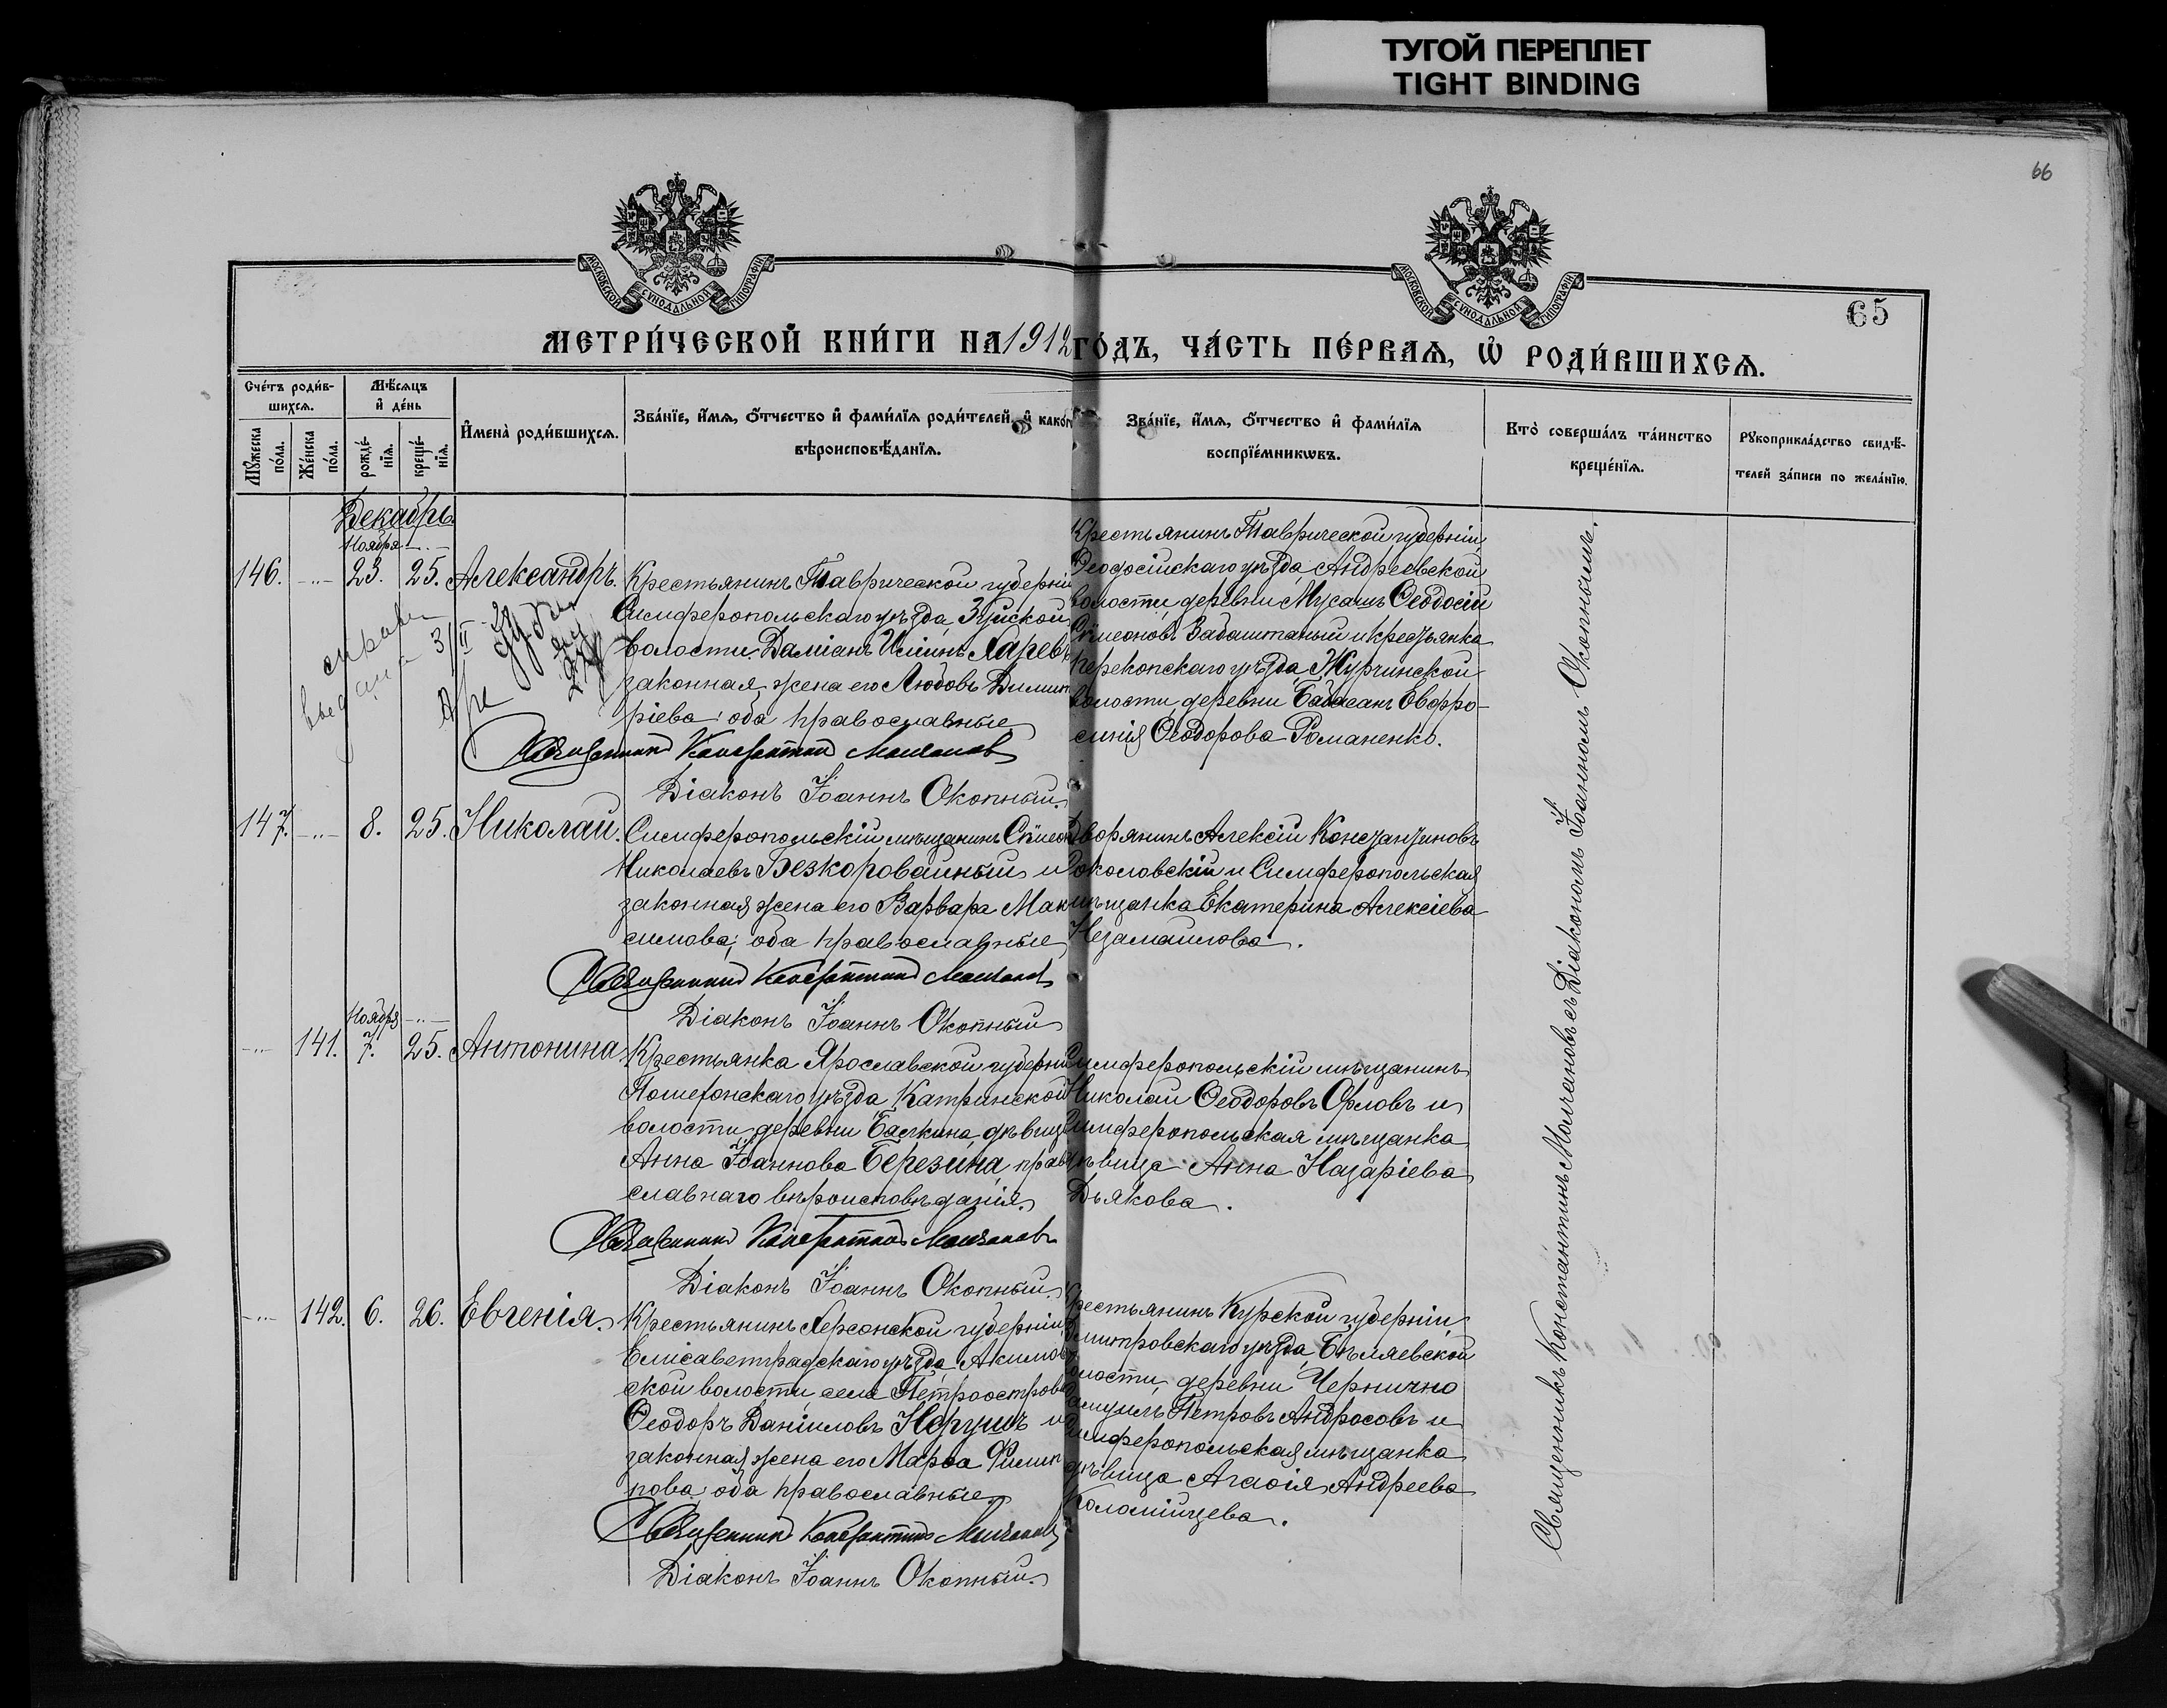 ТУГОЙ ПЕРЕПЛЕТ
TIGHT BINDING
66
МОСКОВСКОЙ СѴНОДАЛЬНОЙ ТИПОГРАФІИ
МОСКОВСКОЙ СѴНОДАЛЬНОЙ ТИПОГРАФІИ
65
МЕТРИ́ЧЕСКОЙ КНИ́ГИ НА 1912 ГО́ДЪ, ЧА́СТЬ ПЕ́РВАѦ, Ѡ҆ РОДИ́ВШИХСѦ.
Сче́тъ роди́в-
шихсѧ.
Мѣ́сѧцъ
и҆ де́нь
Мꙋ́жеска
по́ла.
Же́нска
по́ла.
рожде́-
нїѧ.
креще́-
нїѧ.
И҆мена̀ роди́вшихсѧ.
Зва́нїе, и҆́мѧ, ѻ҆́тчество и҆ фами́лїѧ роди́телей, и҆ како́гѡ
вѣроисповѣ́данїѧ.
Зва́нїе, и҆́мѧ, ѻ҆́тчество и҆ фами́лїѧ
воспрїе́мникѡвъ.
Кто̀ соверша́лъ та́инство
креще́нїѧ.
Рꙋкоприкла́дство свидѣ́-
телей за́писи по жела́нїю.
Декабрь
Ноября
146. -..- 23. 25. Александръ.
Крестьянинъ Таврической губерніи
Симферопольскаго уѣзда, Зуйской
волости Даміанъ Ильинъ Ларевъ
законная жена его Любовь Димит
ріева; оба православные
Священникъ Константинъ Молчановъ
Діаконъ Іоаннъ Окопный.
Крестьянинъ Таврической губерніи,
Ѳеодосійскаго уѣзда, Андреевской
волости, деревни Мусашъ Ѳеодосій
Сѵмеоновъ Забаштаный и крестьянка
перекопскаго уѣзда, Журчинской
волости, деревни Евфро-
синія Ѳеодорова Романенко.
справка
выдана 3/II
147. -..- 8. 25. Николай.
Симферопольскій мѣщанинъ Сѵмеонъ
Николаевъ Безкоровайный и
законная жена его Варвара Мак
симова; оба православные
Священникъ Константинъ Молчановъ
Діаконъ Іоаннъ Окопный
Дворянинъ Алексій Константиновъ
Соколовскій и Симферопольская
мѣщанка Екатерина Алексіева
Незамайлова.
Ноября
-..- 141. 7. 25. Антонина
Крестьянка Ярославской губерніи
Пошехонскаго уѣзда Катринской
волости деревни Балкина дѣвица
Анна Іоаннова Березина, право
славнаго вѣроисповѣданія.
Священникъ Константинъ Молчановъ
Діаконъ Іоаннъ Окопный.
Симферопольскій мѣщанинъ
Николай Ѳеодоровъ Орловъ и
Симферопольская мѣщанка
дѣвица Анна Назаріева
Дьякова.
-..- 142. 6. 26. Евгенія.
Крестьянинъ Херсонской губерніи,
Елисаветградскаго уѣзда, Акимов
ской волости, села Петроострова
Ѳеодоръ Даніиловъ Нерушъ и
законная жена его Марѳа Филип
пова; оба православные
Священникъ Константинъ Молчановъ
Діаконъ Іоаннъ Окопный.
Крестьянинъ Курской губерніи,
Дмитровскаго уѣзда, Бѣляевской
волости, деревни Чернично
Самуилъ Петровъ Андросовъ и
Симферопольская мѣщанка
дѣвица Агаѳія Андреева
Коломійцева.
Священникъ Константинъ Молчановъ съ Діакономъ Іоанномъ Окопнымъ.